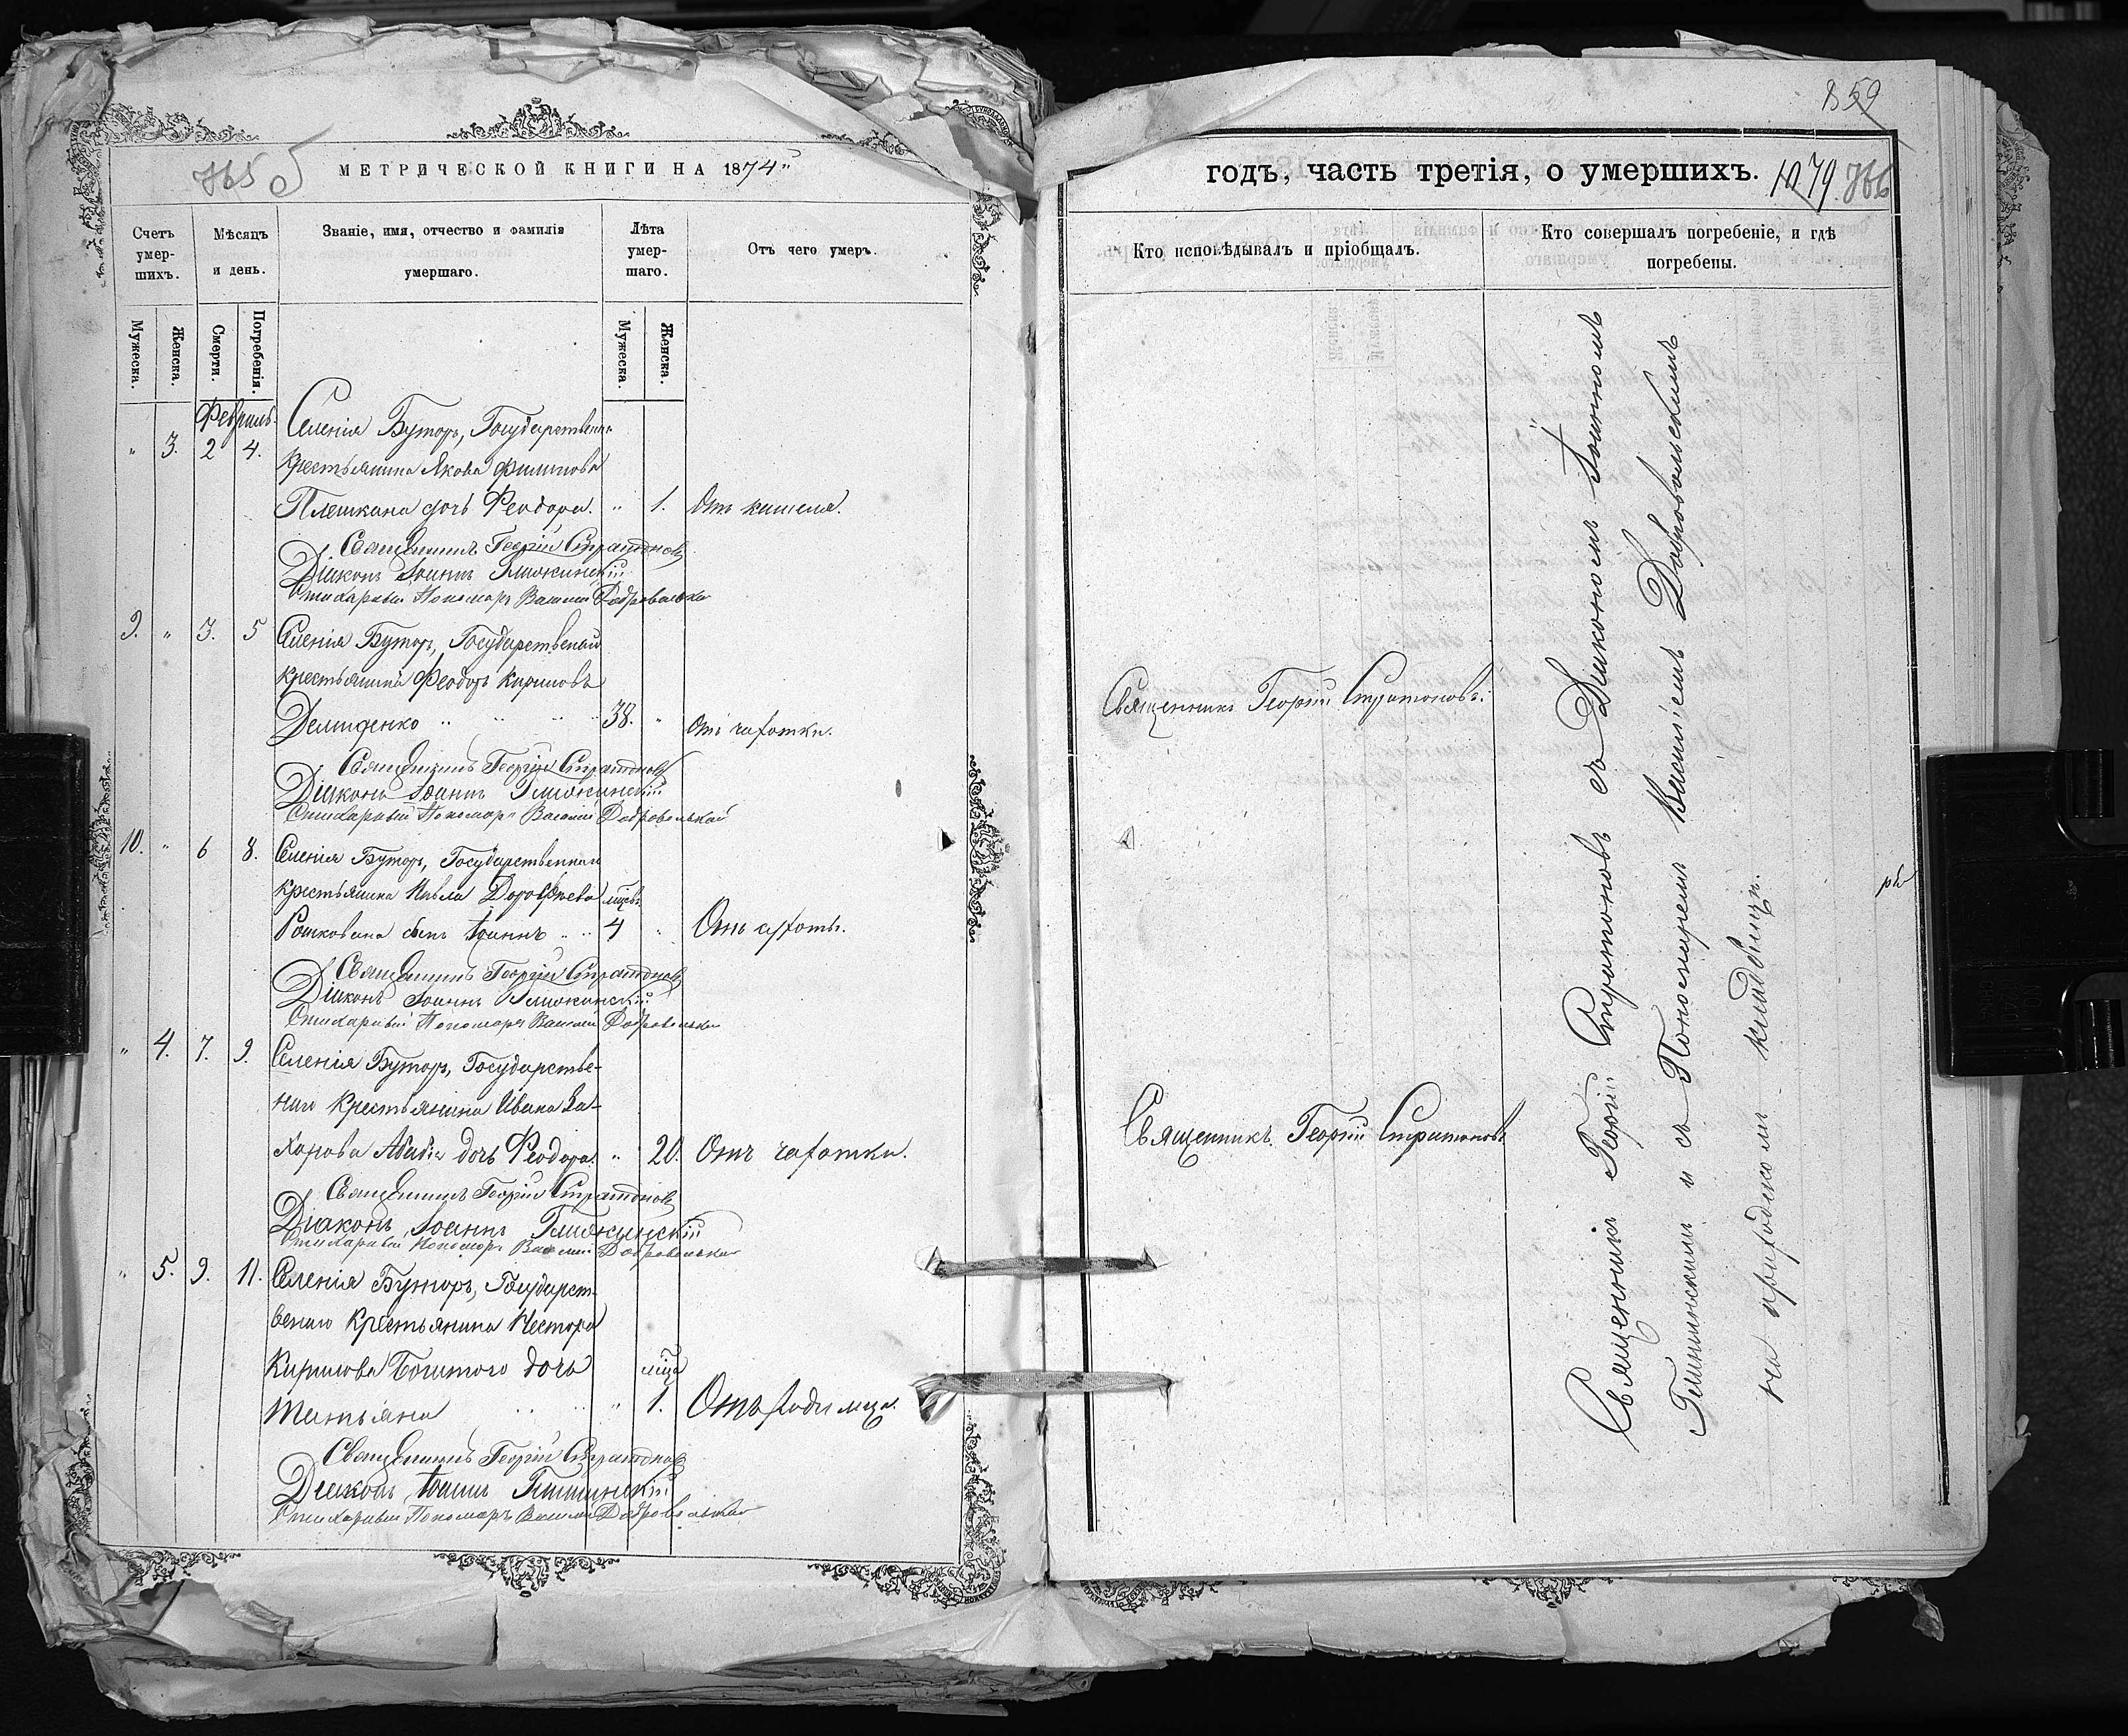 765 об
МЕТРИЧЕСКОЙ КНИГИ НА 1874
Счетъ умер-шихъ.
Мѣсяцъ и день.
Званіе, имя, отчество и фамилія умершаго.
Лѣта умер-шаго.
Отъ чего умеръ.
Мужеска.
Женска.
Смерти.
Погребенія.
Мужеска.
Женска.
Февраль.
" 3. 2 4. Селенія Буторъ, Государственна
Крестьянина Якова Филипова
Плешкана дочь Феодора. " 1. Отъ кашеля.
Священникъ Георгій Стратоновъ
Діаконъ Іоаннъ Глижинскій
Стихарный Пономарь Василій Добровольскій
9. " 3. 5 Селенія Буторъ, Государственый
крестьянинъ Феодоръ Кириловъ
Демиденко " " " 38. " Отъ чахотки.
Священникъ Георгій Стратоновъ
Діаконъ Іоаннъ Глижинскій
Стихарный Пономарь Василій Добровольскій
10. " 6 8. Селенія Буторъ, Государственнаго
крестьянина Павла Дорофеева мцовъ
Рошкована сынъ Іоаннъ " " 4 "
Священникъ Георгій Стратоновъ
Діаконъ Іоаннъ Глижинскій
Стихарный Пономарь Василій Добровольскій
" 4. 7. 9. Селенія Буторъ, Государстве-
наго Крестьянина Ивана За-
харова дочь Феодора. " 20. Отъ чахотки.
Священникъ Георгій Стратоновъ
Діаконъ Іоаннъ Глижинскій
Стихарный Пономарь Василій Добровольскій
" 5. 9. 11. Селенія Буторъ, Государст-
венаго Крестьянина Нестора
Кирилова дочь мца
Татьяна " " " 1. Отъ родимца.
Священникъ Георгій Стратоновъ
Діаконъ Іоаннъ Глижинскій
Стихарный Пономарь Василій Добровольскій
859
годъ, часть третія, о умершихъ. 1079. 766
Кто исповѣдывалъ и пріобщалъ.
Кто совершалъ погребеніе, и гдѣ погребены.
Священникъ Георгій Стратоновъ.
Священникъ Георгій Стратоновъ
Священникъ Георгій Стратоновъ съ Діакономъ Іоанномъ
Глижинскимъ и съ Пономаремъ Василіемъ Добровольскимъ
на приходскомъ кладбищѣ.